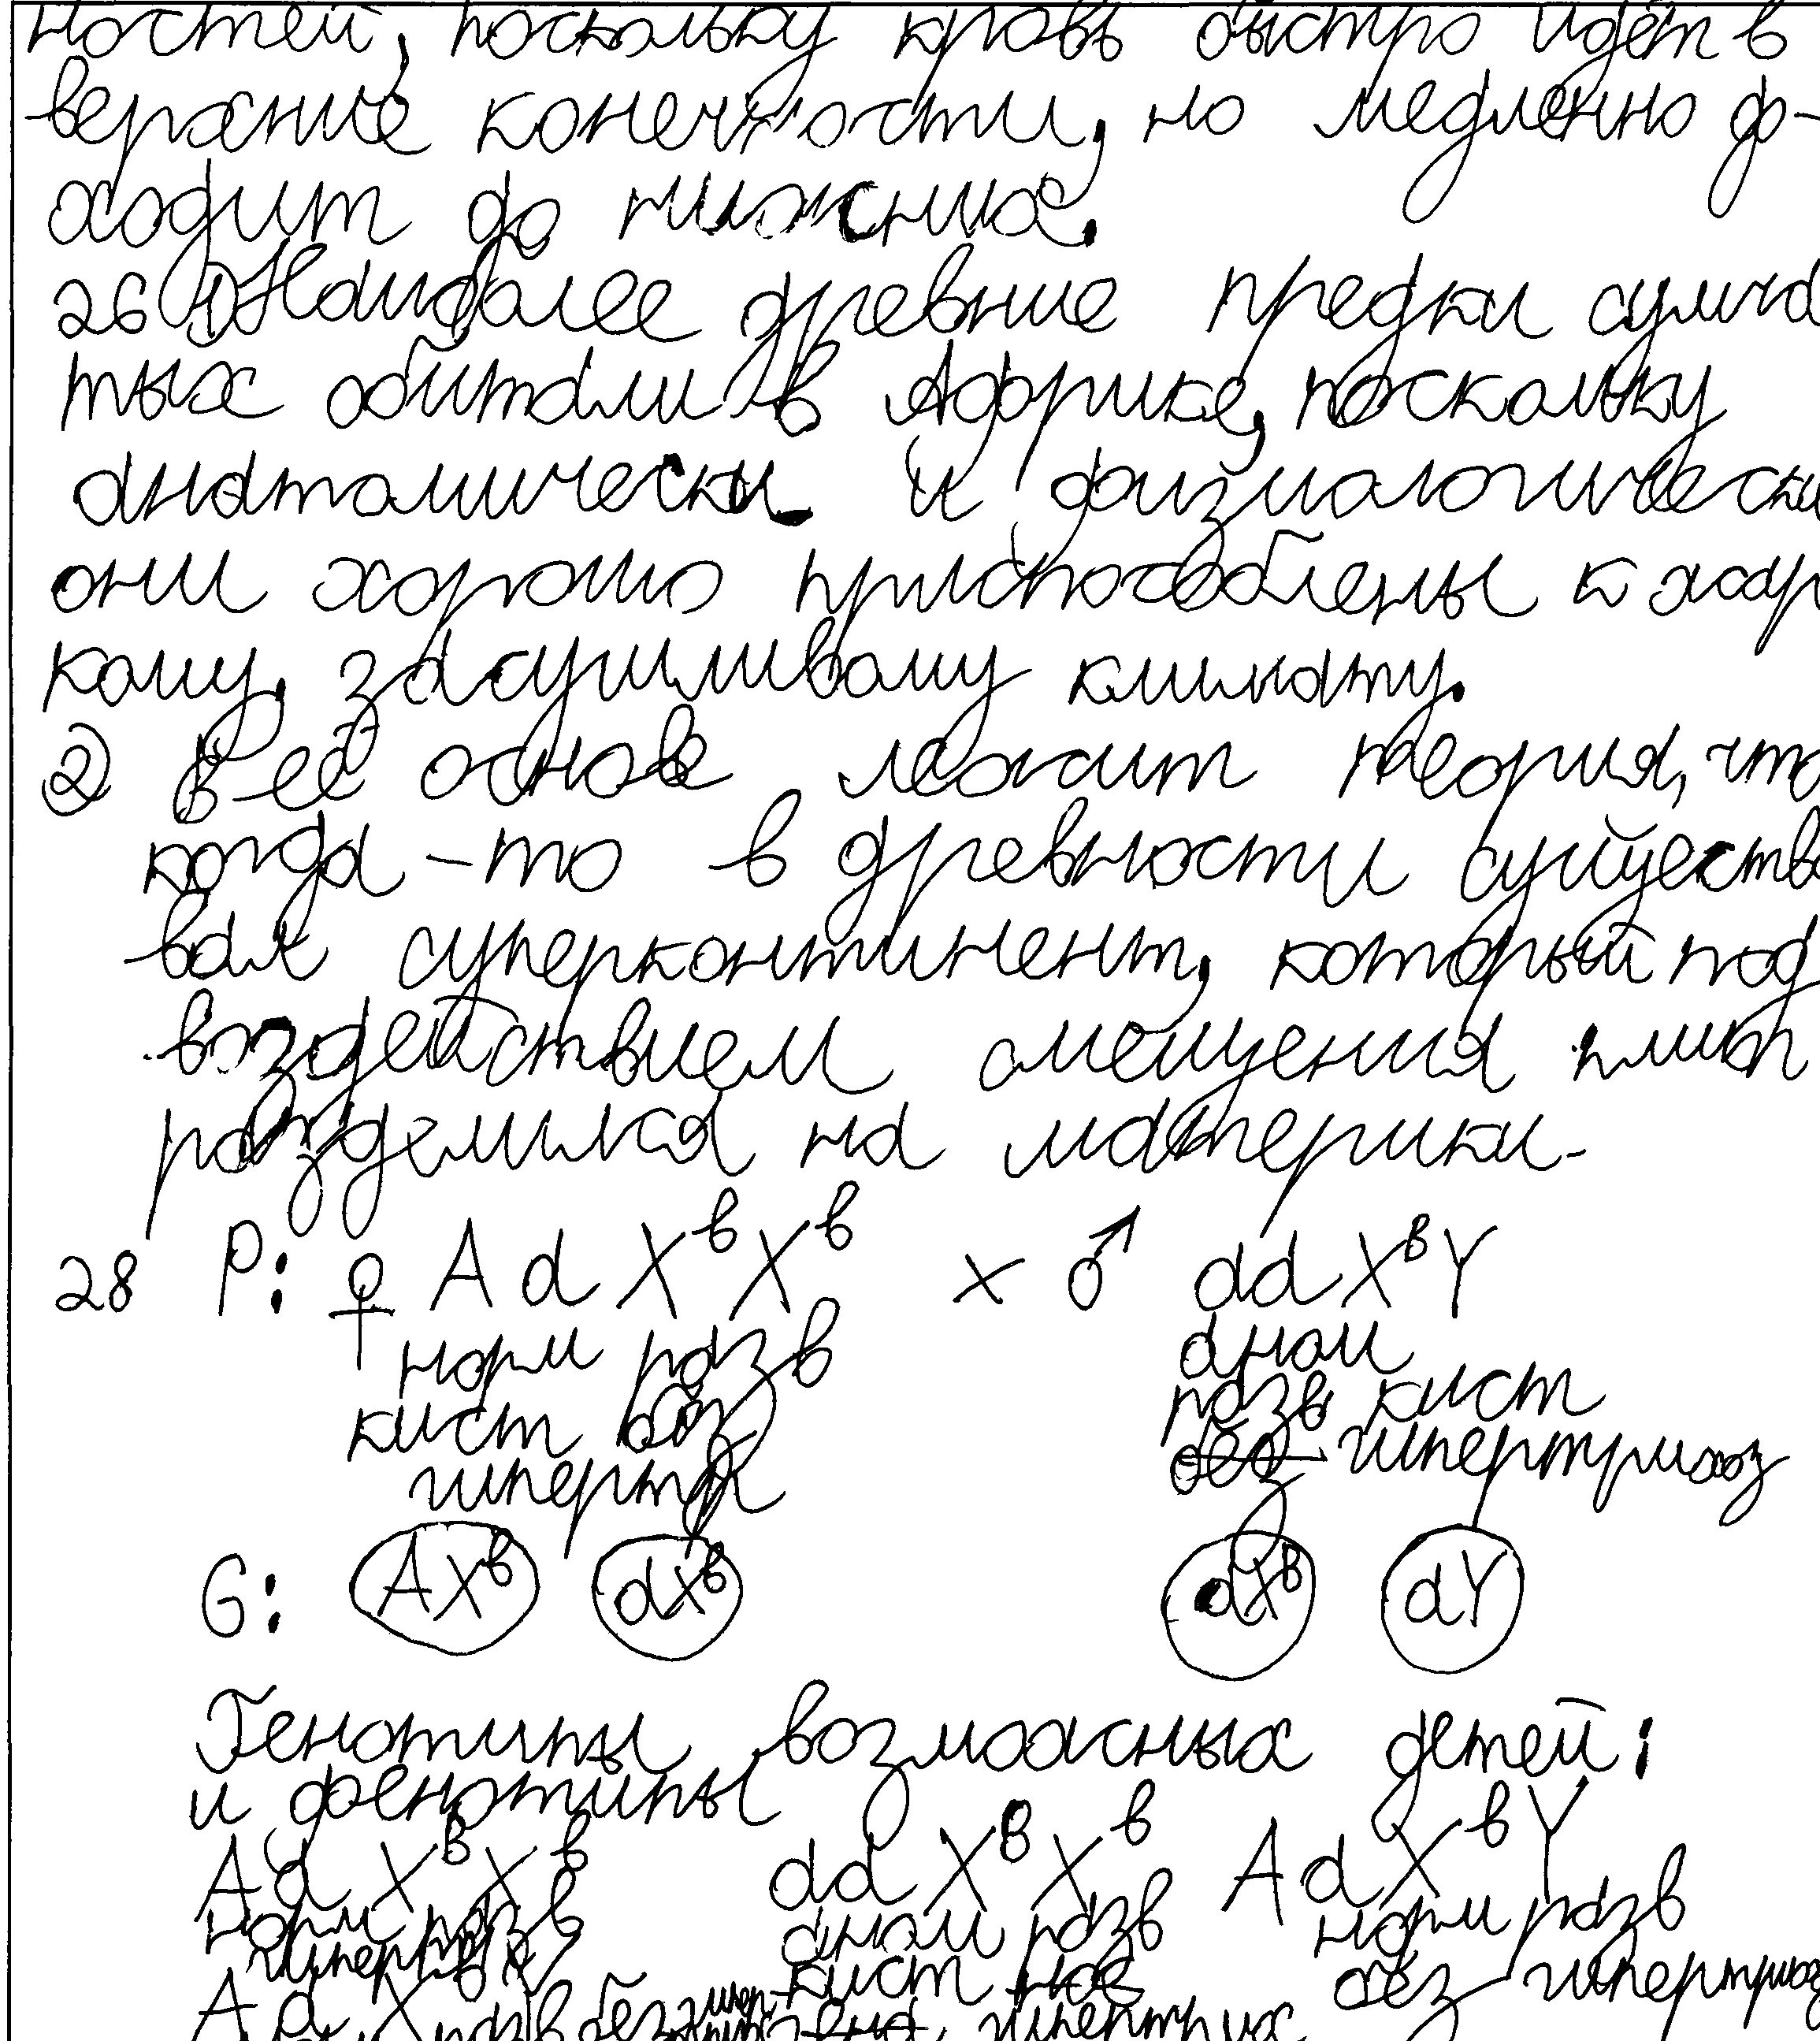 ностей, поскольку кровь быстро идёт в
верхние конечности, но медленно до-
ходит до нижних.
26 ① Наиболее древние предки сумча
тых обитали в Африке, поскольку
анатомически и физиологически
они хорошо приспособлены к жар
кому, засушливому климату.
② В её основе лежит теория, что
когда-то в древности существо
вал суперконтинент, который под
воздействием смещения плит
разделился на материки.
28 P: ♀ Aa XᵇXᵇ x ♂ aa XᴮY
норм разв аном
кист без разв кист
гиперտр гипертрихоз
G: AXᵇ aXᵇ aXᴮ aY
Генотипы возможных детей:
и фенотипы
Aa XᴮXᵇ aa XᴮXᵇ Aa XᵇY
норм разв аном разв норм разв
гипертр кист без гипертрихоз